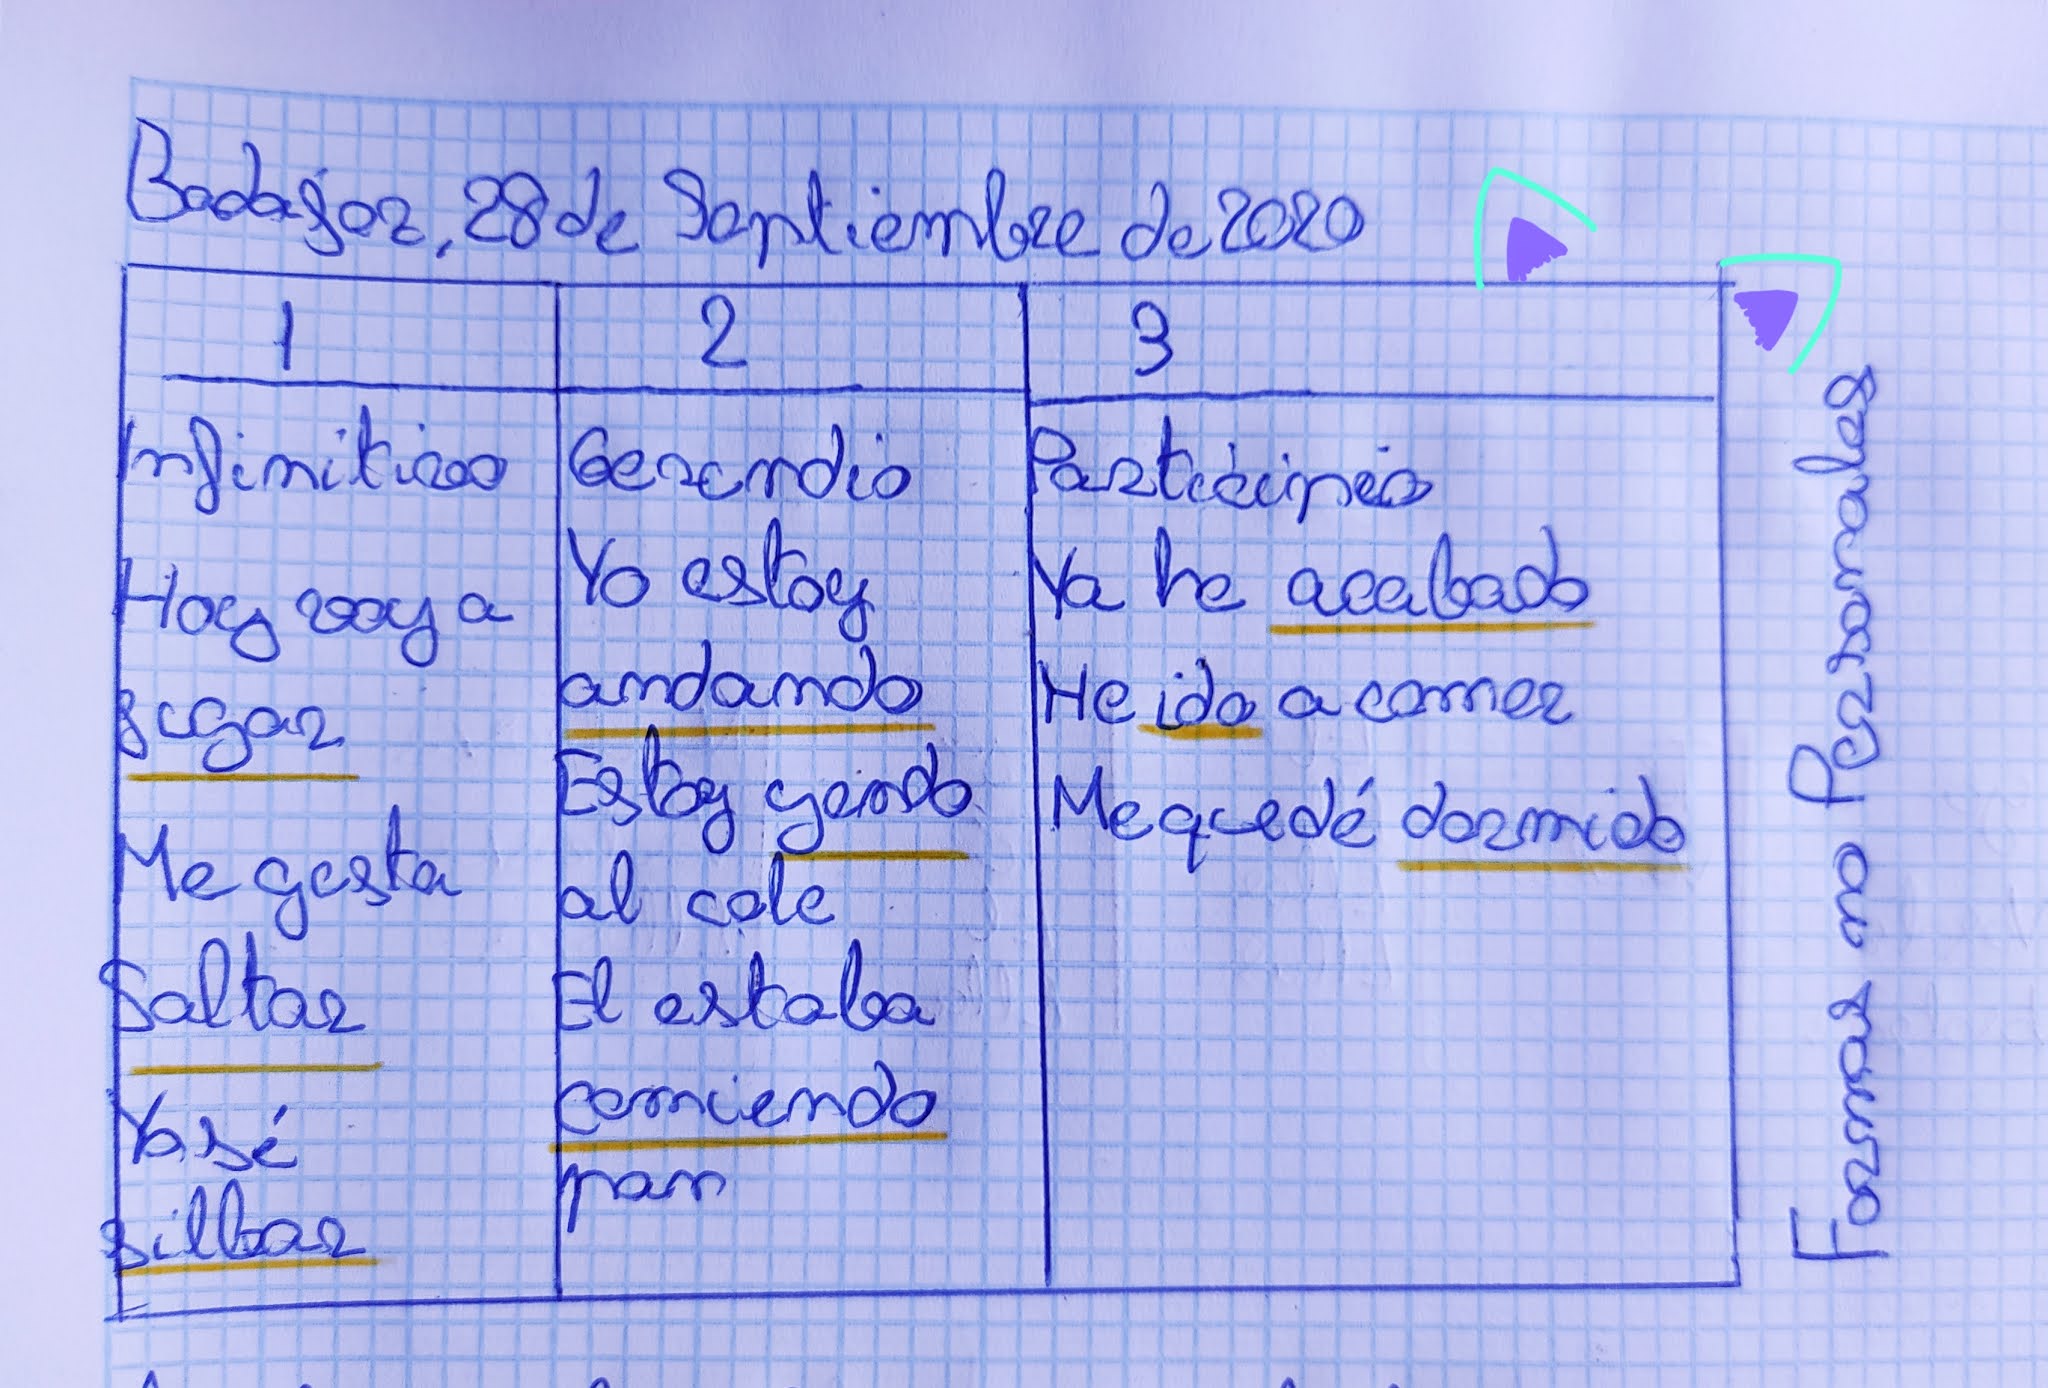 Badajoz, 28 de Septiembre de 2020
1
Infinitivo
Hoy voy a
jugar
Me gusta
Saltar
Yo sé
silbar
2
Gerundio
Yo estoy
andando
Estoy yendo
al cole
El estaba
comiendo
pan
3
Participio
Ya he acabado
He ido a comer
Me quedé dormido
Formas no Personales